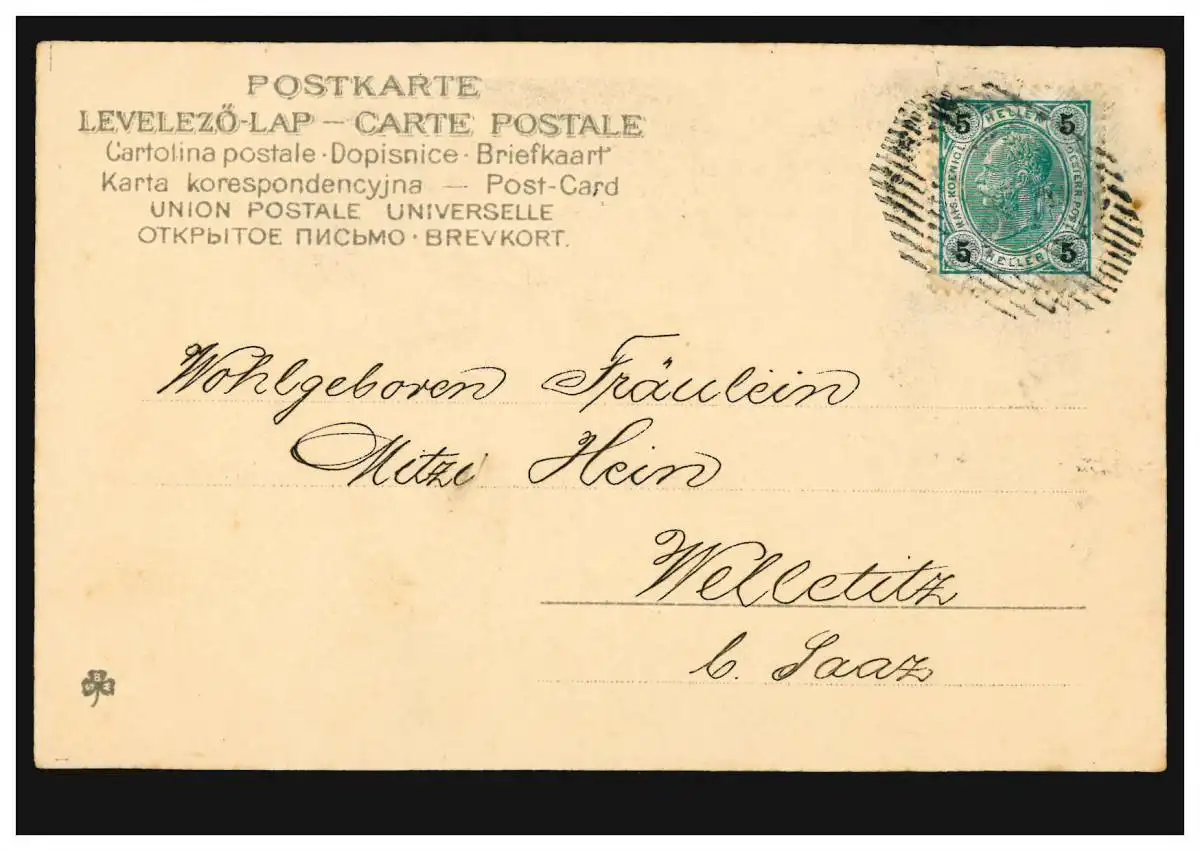 POSTKARTE
LEVELEZŐ-LAP – CARTE POSTALE
Cartolina postale · Dopisnice · Briefkaart
Karta korespondencyjna — Post-Card
UNION POSTALE UNIVERSELLE
ОТКРЫТОЕ ПИСЬМО · BREVKORT.
5 HELLER 5
KAIS. KOENIGL. OESTERR. POST
5 HELLER 5
Wohlgeboren Fräulein
Mitzi Hein
Welletitz
b. Saaz